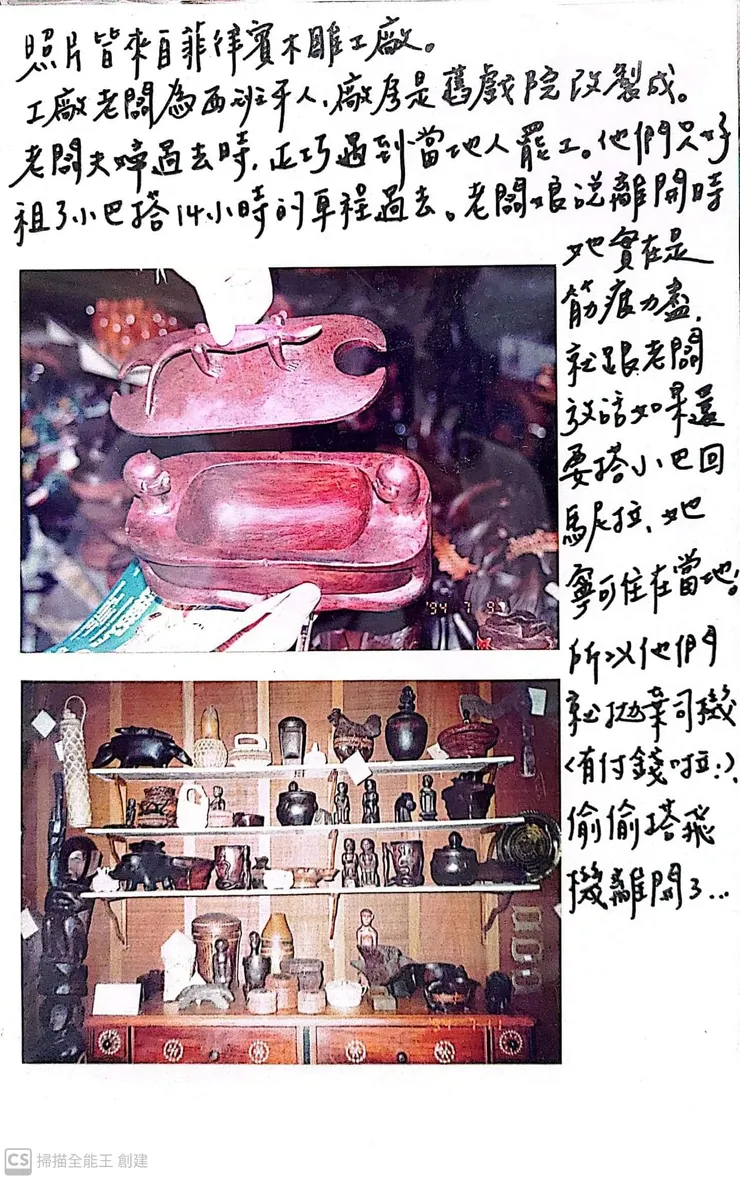 照片皆來自菲律賓木雕工廠。
工廠老闆為西班牙人，廠房是舊戲院改製成。
老闆夫婦過去時，正巧遇到當地人罷工。他們只好
租了小巴搭14小時的車程過去。老闆娘說離開時
她實在是
筋疲力盡，
就跟老闆
放話如果還
要搭小巴回
馬尼拉，她
寧可住在當地！
所以他們
就拋棄司機
(有付錢啦！)，
偷偷搭飛
機離開了...
'94 7
CS 掃描全能王 創建